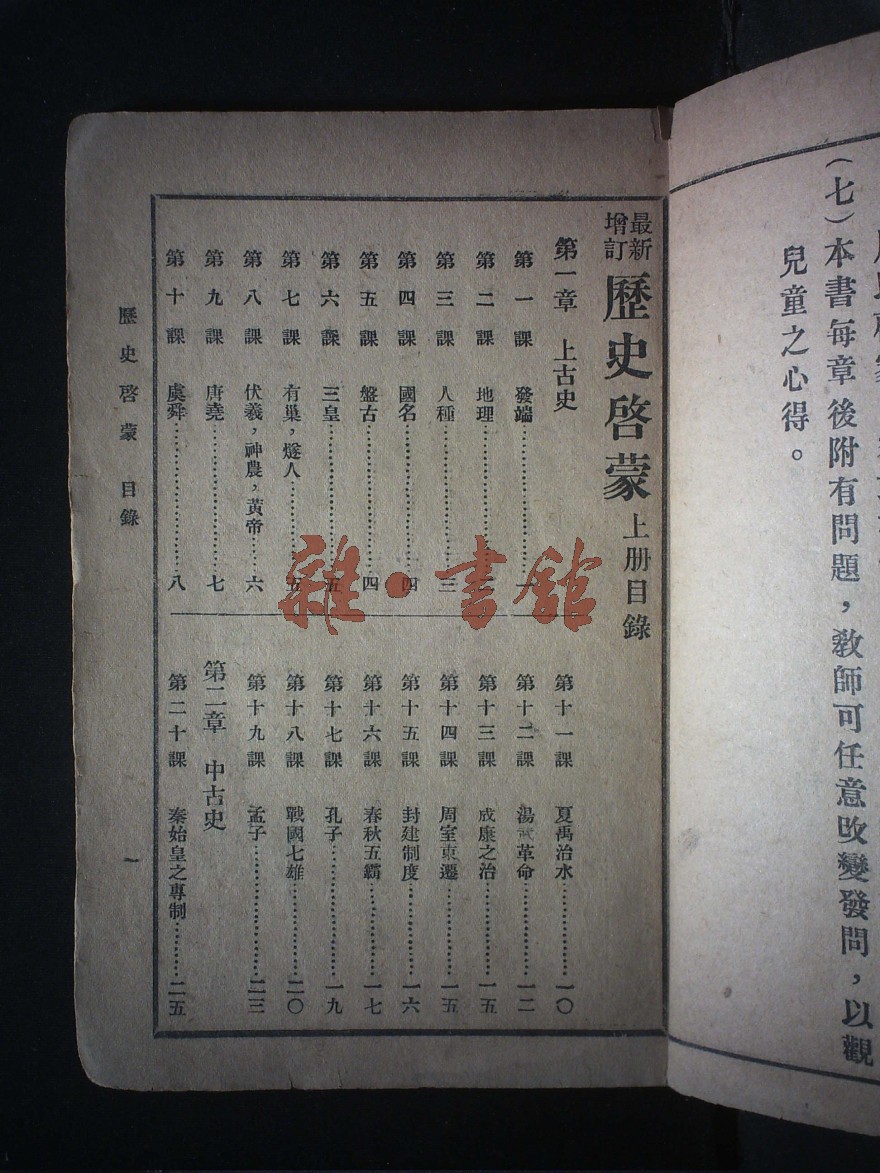 (七)本書每章後附有問題,教師可任意改變發問,以觀
兒童之心得。
最新增訂 歷史啓蒙 上册目錄
第一章 上古史
第一課 發端……………一
第二課 地理……………二
第三課 人種……………三
第四課 國名……………四
第五課 盤古……………四
第六課 三皇……………五
第七課 有巢,燧人……………五
第八課 伏羲,神農,黃帝……六
第九課 唐堯……………七
第十課 虞舜……………八
第十一課 夏禹治水……………一〇
第十二課 湯武革命……………一二
第十三課 成康之治……………一五
第十四課 周室東遷……………一五
第十五課 封建制度……………一六
第十六課 春秋五霸……………一七
第十七課 孔子……………一九
第十八課 戰國七雄……………二〇
第十九課 孟子……………二三
第二章 中古史
第二十課 秦始皇之專制………二五
歷史啓蒙 目錄
一
雜·書館